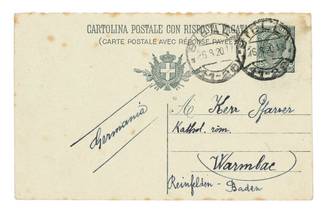 CARTOLINA POSTALE CON RISPOSTA PAGATA
(CARTE POSTALE AVEC RÉPONSE PAYÉE)
26.8.20
Germania
A Herr Pfarrer
Kathol. röm.
Warmbac
Reinfelden-
Baden